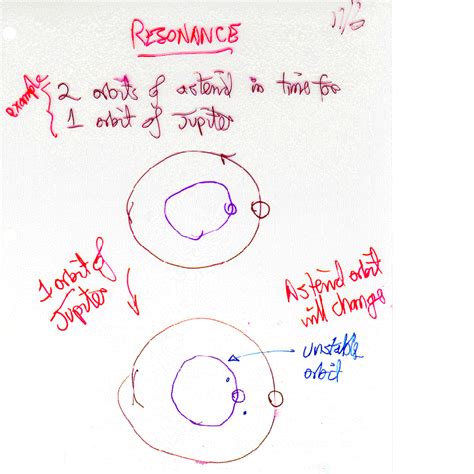 RESONANCE
example
2 orbits of asteroid in time for
1 orbit of Jupiter
1 orbit of
Jupiter
Asteroid orbit
will change
unstable
orbit